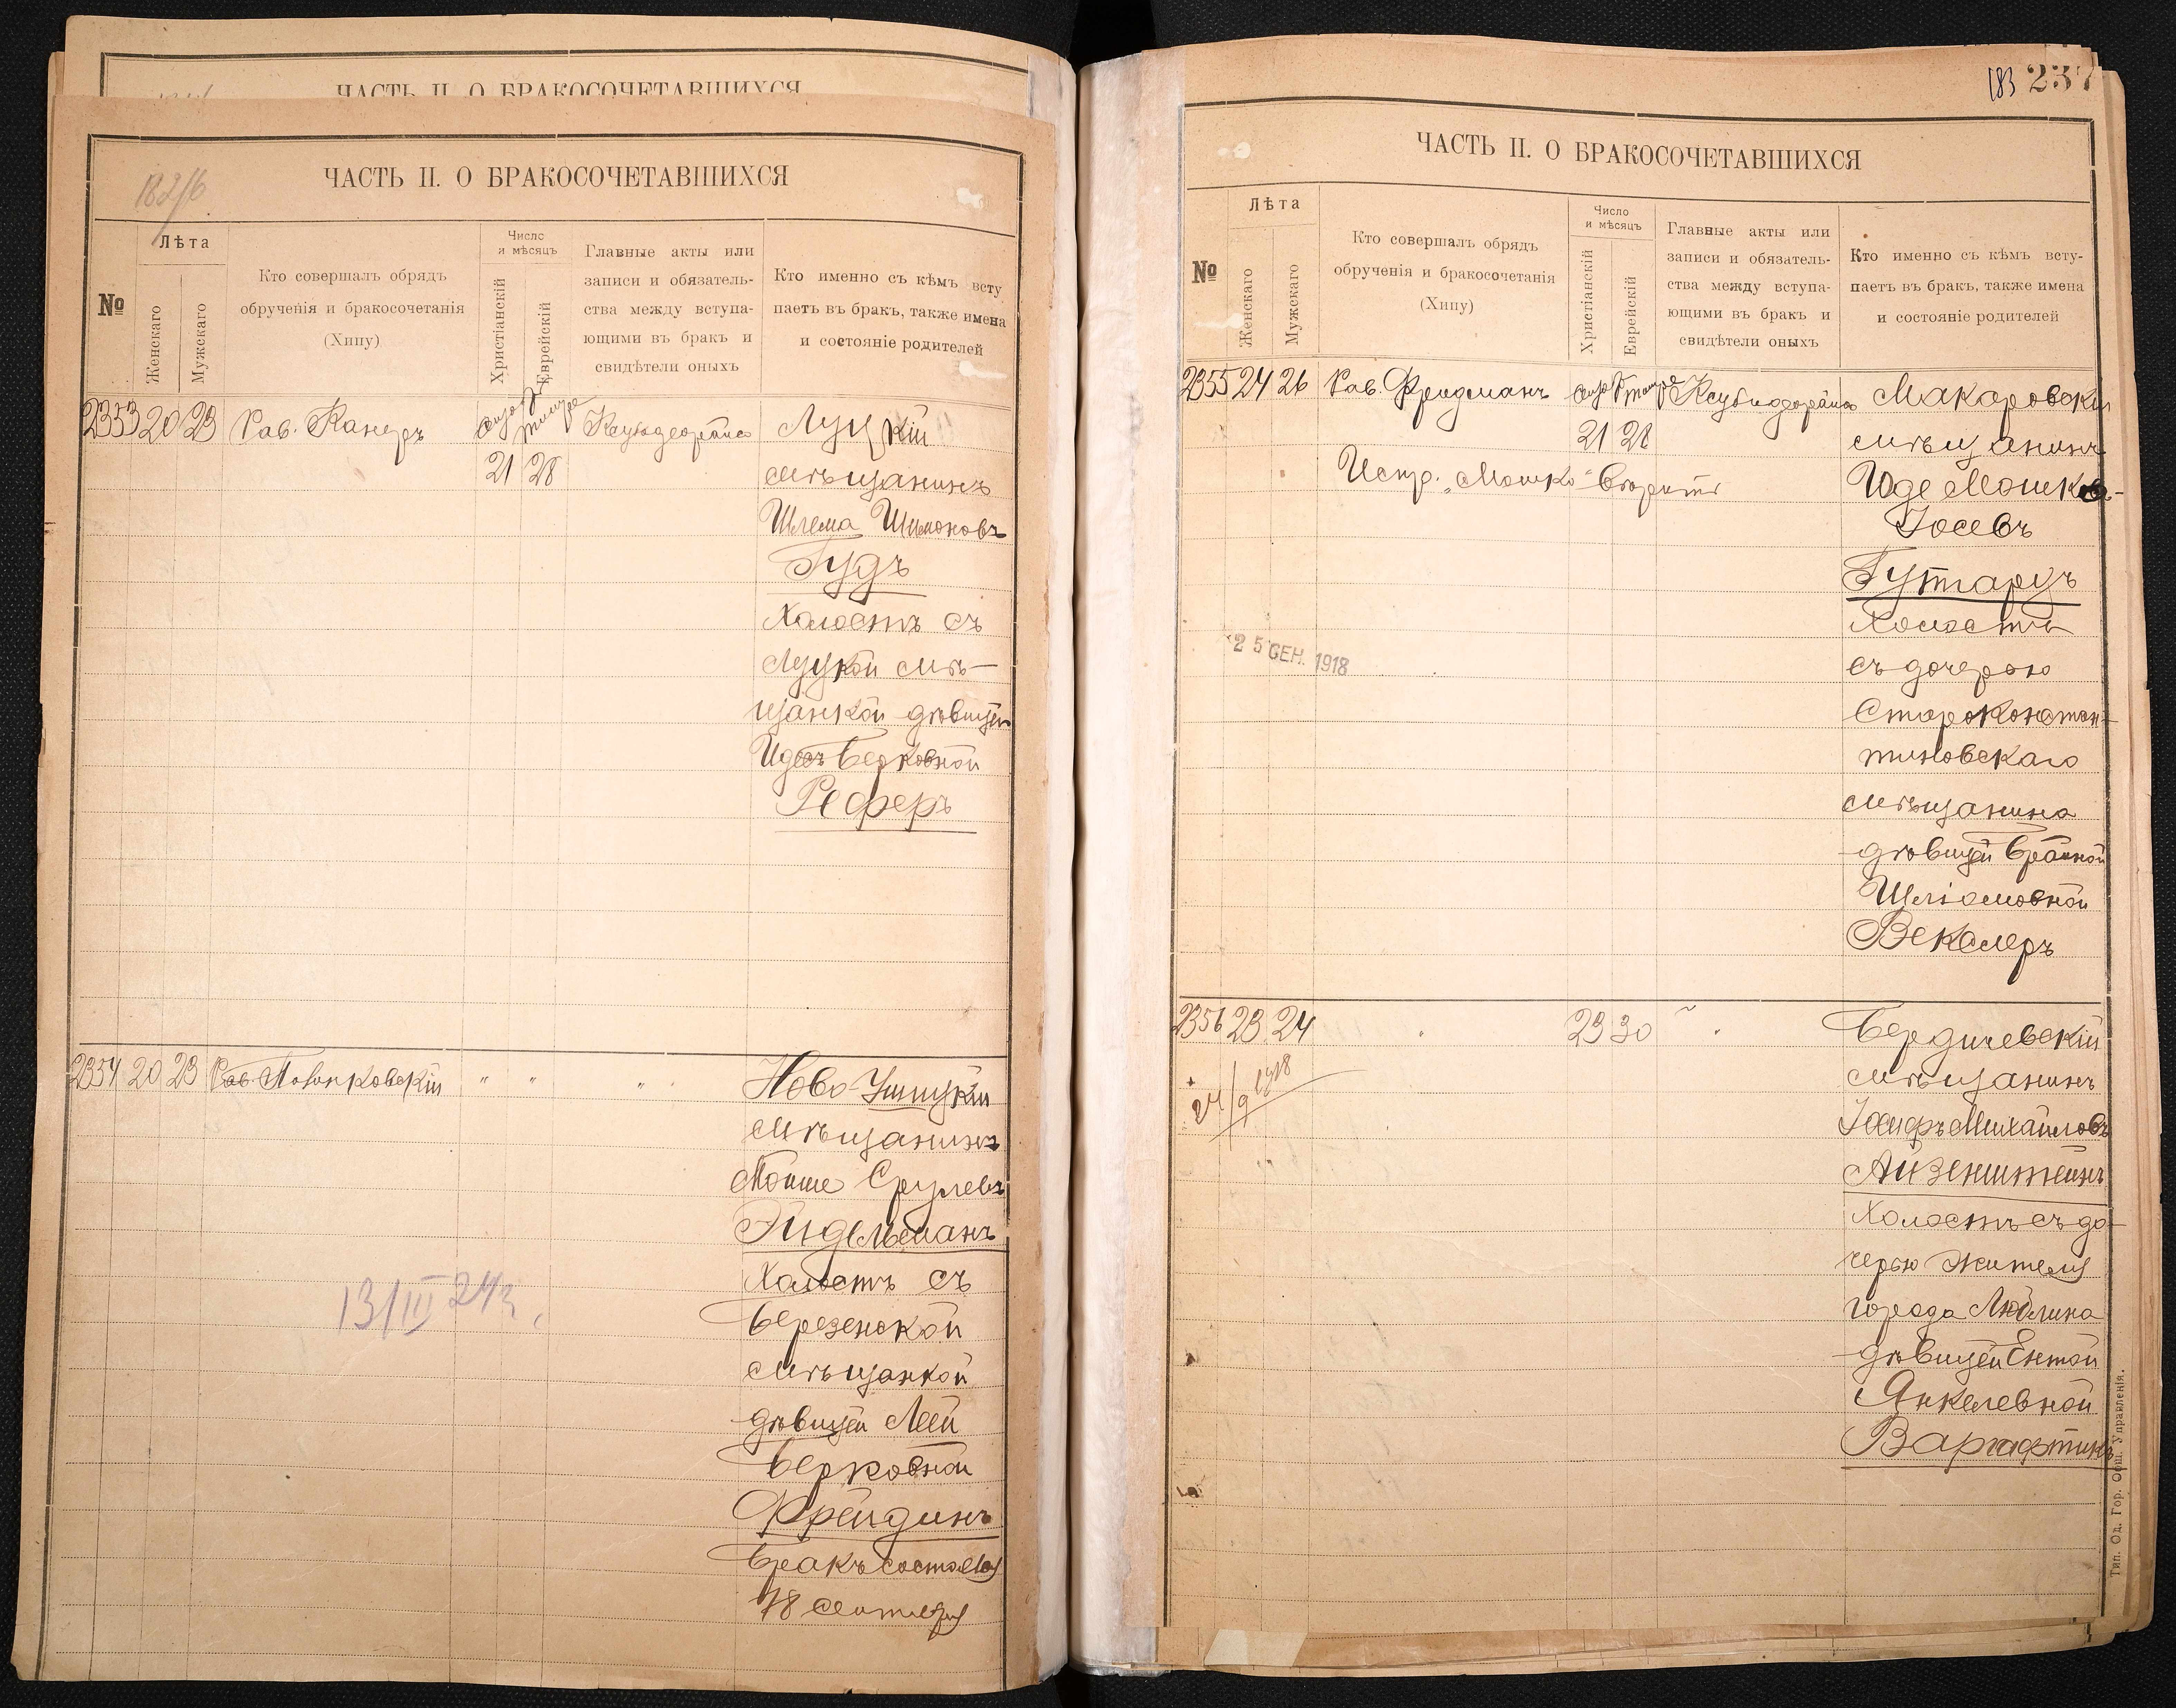 ЧАСТЬ II. О БРАКОСОЧЕТАВШИХСЯ
ЧАСТЬ II. О БРАКОСОЧЕТАВШИХСЯ
№
Лѣта
Женскаго
Мужскаго
Кто совершалъ обрядъ
обрученія и бракосочетанія
(Хипу)
Число
и мѣсяцъ
Христіанскій
Еврейскій
Главные акты или
записи и обязатель-
ства между вступа-
ющими въ бракъ и
свидѣтели оныхъ
Кто именно съ кѣмъ всту
паетъ въ бракъ, также имена
и состояніе родителей
2353 20 23 Рав. Канеръ
21 28
Луцкій
мѣщанинъ
Шлема Шимоновъ
Гудъ
Холостъ съ
Луцкой мѣ-
щанкой дѣвицей
Берковной
Реферъ
2354 20 23 Рав. " " "
Ново-Ушицкій
мѣщанинъ
Мойше Срулевъ
Эйдельманъ
Холостъ съ
Березенской
мѣщанкой
дѣвицей Леей
Берковной
Фрейдинъ
Бракъ состоялся
18 сентября
13/III 24г.
183 237
ЧАСТЬ II. О БРАКОСОЧЕТАВШИХСЯ
№
Лѣта
Женскаго
Мужскаго
Кто совершалъ обрядъ
обрученія и бракосочетанія
(Хипу)
Число
и мѣсяцъ
Христіанскій
Еврейскій
Главные акты или
записи и обязатель-
ства между вступа-
ющими въ бракъ и
свидѣтели оныхъ
Кто именно съ кѣмъ всту-
паетъ въ бракъ, также имена
и состояніе родителей
2355 24 26 Рав. Фридманъ
21 28
Испр. "Мошко"
Макаровскій
мѣщанинъ
Иде Мошко-
Іосевъ
Гутгарцъ
Холостъ
съ дочерью
Староконстан-
тиновскаго
мѣщанина
дѣвицей Брайной
Шліомовной
Векслеръ
25 СЕН. 1918
2356 23 24 23 30
24/9 1918
Бердичевскій
мѣщанинъ
Іосифъ Михайловъ
Айзенштейнъ
Холостъ съ до-
черью жителя
города Люблина
дѣвицей Ентой
Янкелевной
Варгафтикъ
Тип. Од. Гор. Общ. Управленія.